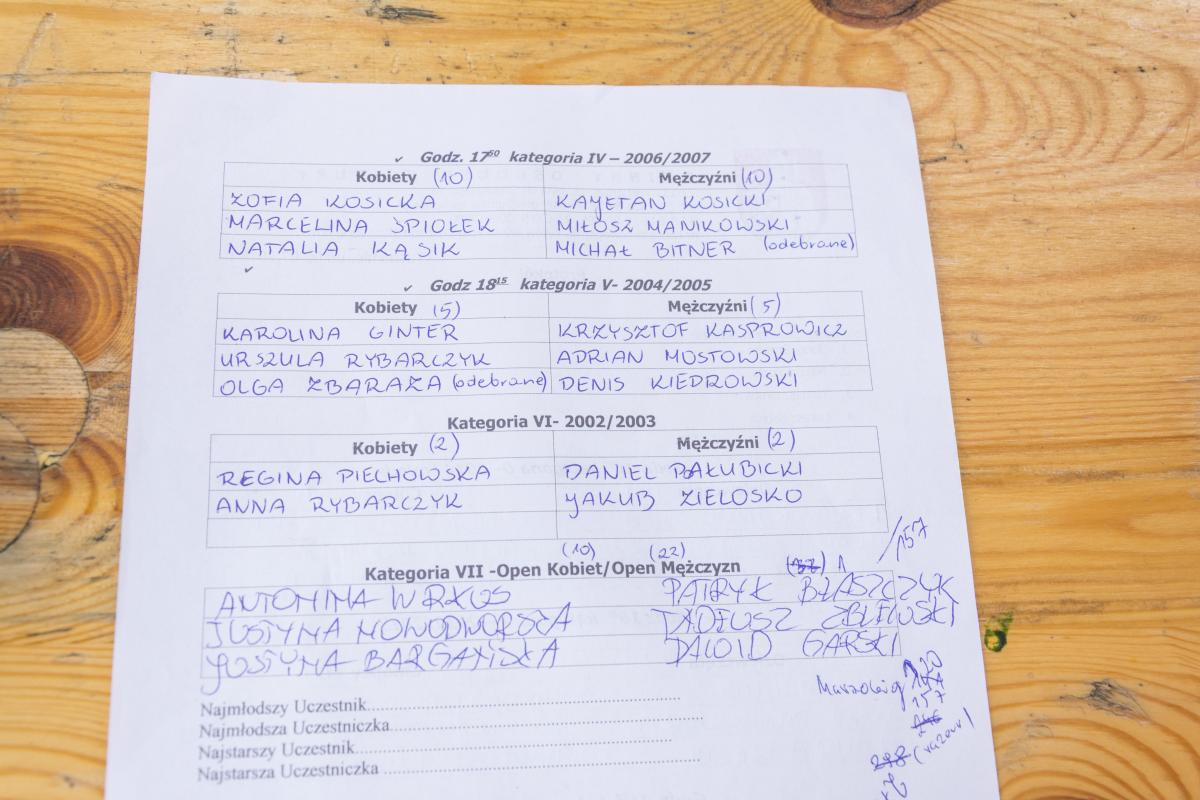 ✓ Godz. 17⁵⁰ kategoria IV – 2006/2007
Kobiety (10) Mężczyźni (10)
ZOFIA KOSICKA KAJETAN KOSICKI
MARCELINA ŚPIOŁEK MIŁOSZ MANIKOWSKI
NATALIA KĄSIK MICHAŁ BITNER (odebrane)
✓
✓ Godz 18¹⁵ kategoria V- 2004/2005
Kobiety (5) Mężczyźni (5)
KAROLINA GINTER KRZYSZTOF KASPROWICZ
URSZULA RYBARCZYK ADRIAN MOSTOWSKI
OLGA ZBARAZA (odebrane) DENIS KIEDROWSKI
Kategoria VI- 2002/2003
Kobiety (2) Mężczyźni (2)
REGINA PIECHOWSKA DANIEL PAŁUBICKI
ANNA RYBARCZYK JAKUB ZIELOSKO
(10) (22) /157
Kategoria VII -Open Kobiet/Open Mężczyzn
ANTONINA WRKUS PATRYK BŁASZCZYK
JUSTYNA NOWODWORSKA TADEUSZ ZBLEWSKI
JUSTYNA BARGAŃSKA DAWID GARSKI
120
157
Najmłodszy Uczestnik
Najmłodsza Uczestniczka
Najstarszy Uczestnik
Najstarsza Uczestniczka